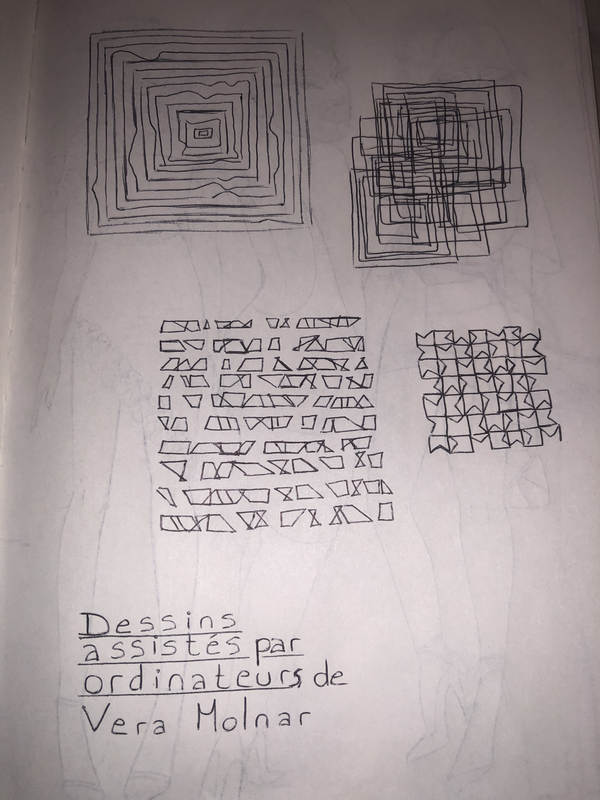 Dessins
assistés par
ordinateurs de
Vera Molnar